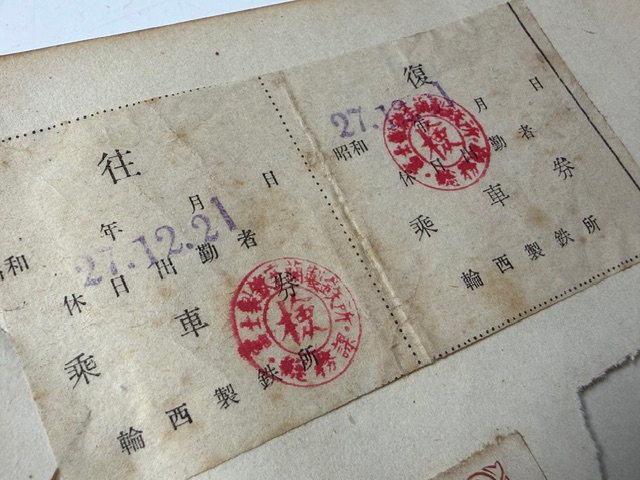 往
昭和 年 月 日
27.12.21
休日出勤者
乗車券
輪西製鉄所
復
昭和 年 月 日
27.12.21
休日出勤者
乗車券
輪西製鉄所
富士製鐵室蘭製鐵所
検